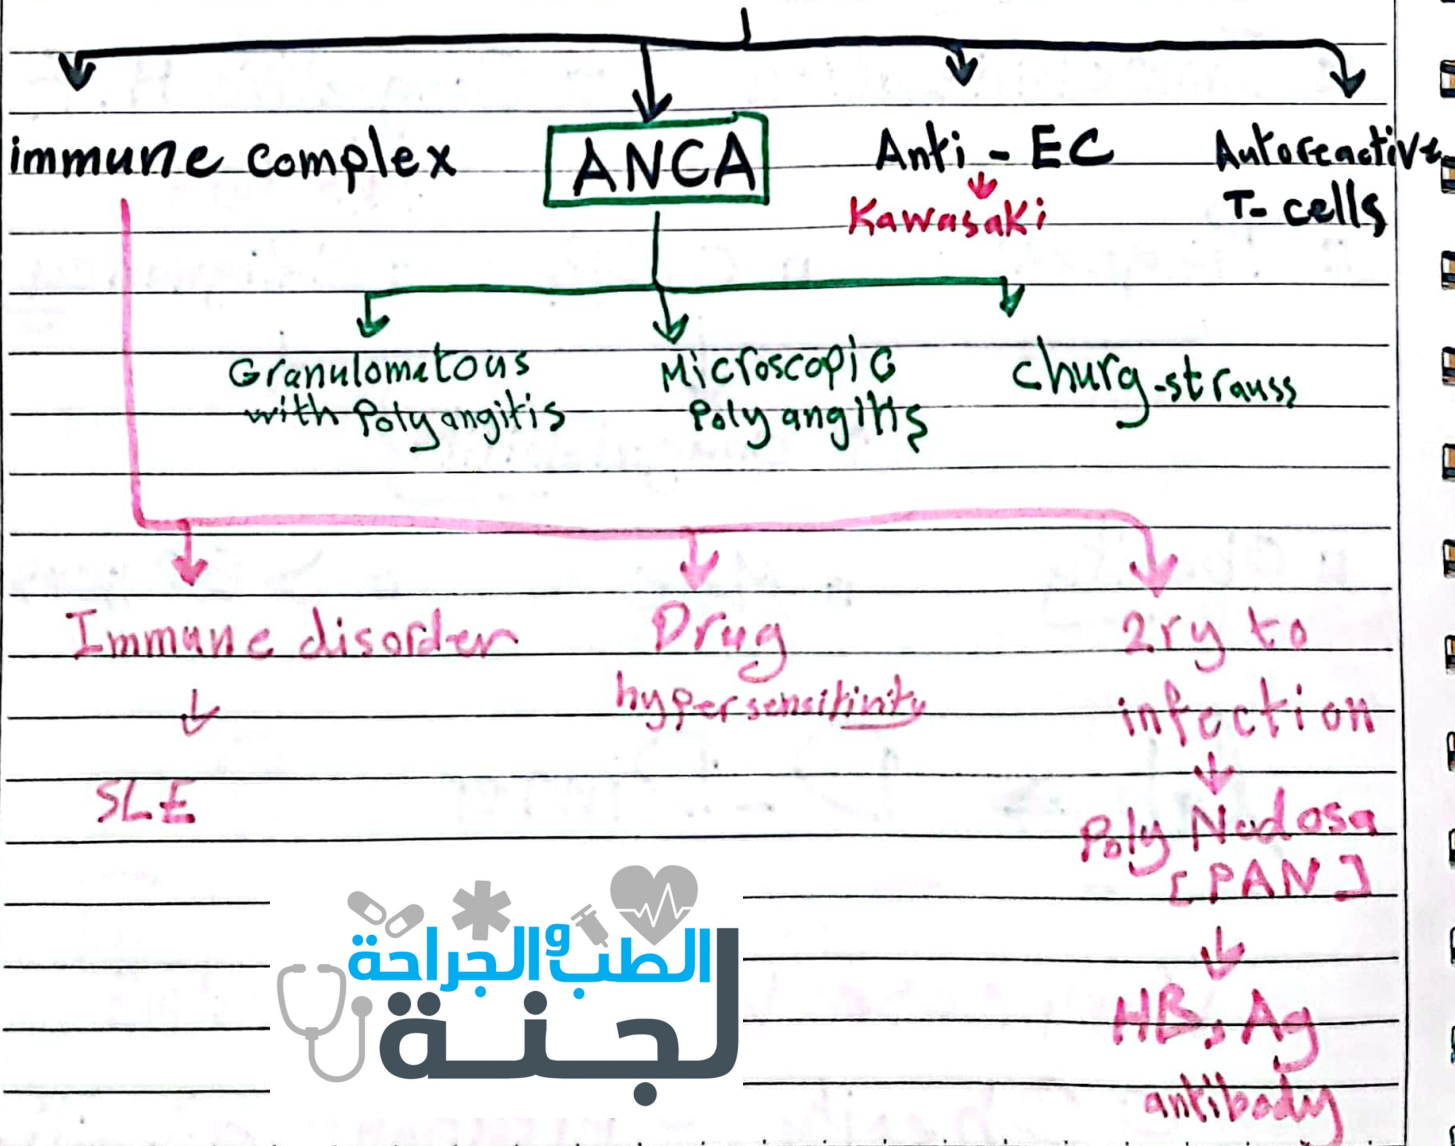 immune complex
ANCA
Anti - EC
Kawasaki
Autoreactive
T- cells
Granulomatous
with Polyangitis
Microscopic
Polyangitis
churg-strauss
Immune disorder
SLE
Drug
hypersensitinity
2ry to
infection
Poly Nodosa
[PAN]
HBsAg
antibody
الطب والجراحة
لجنة